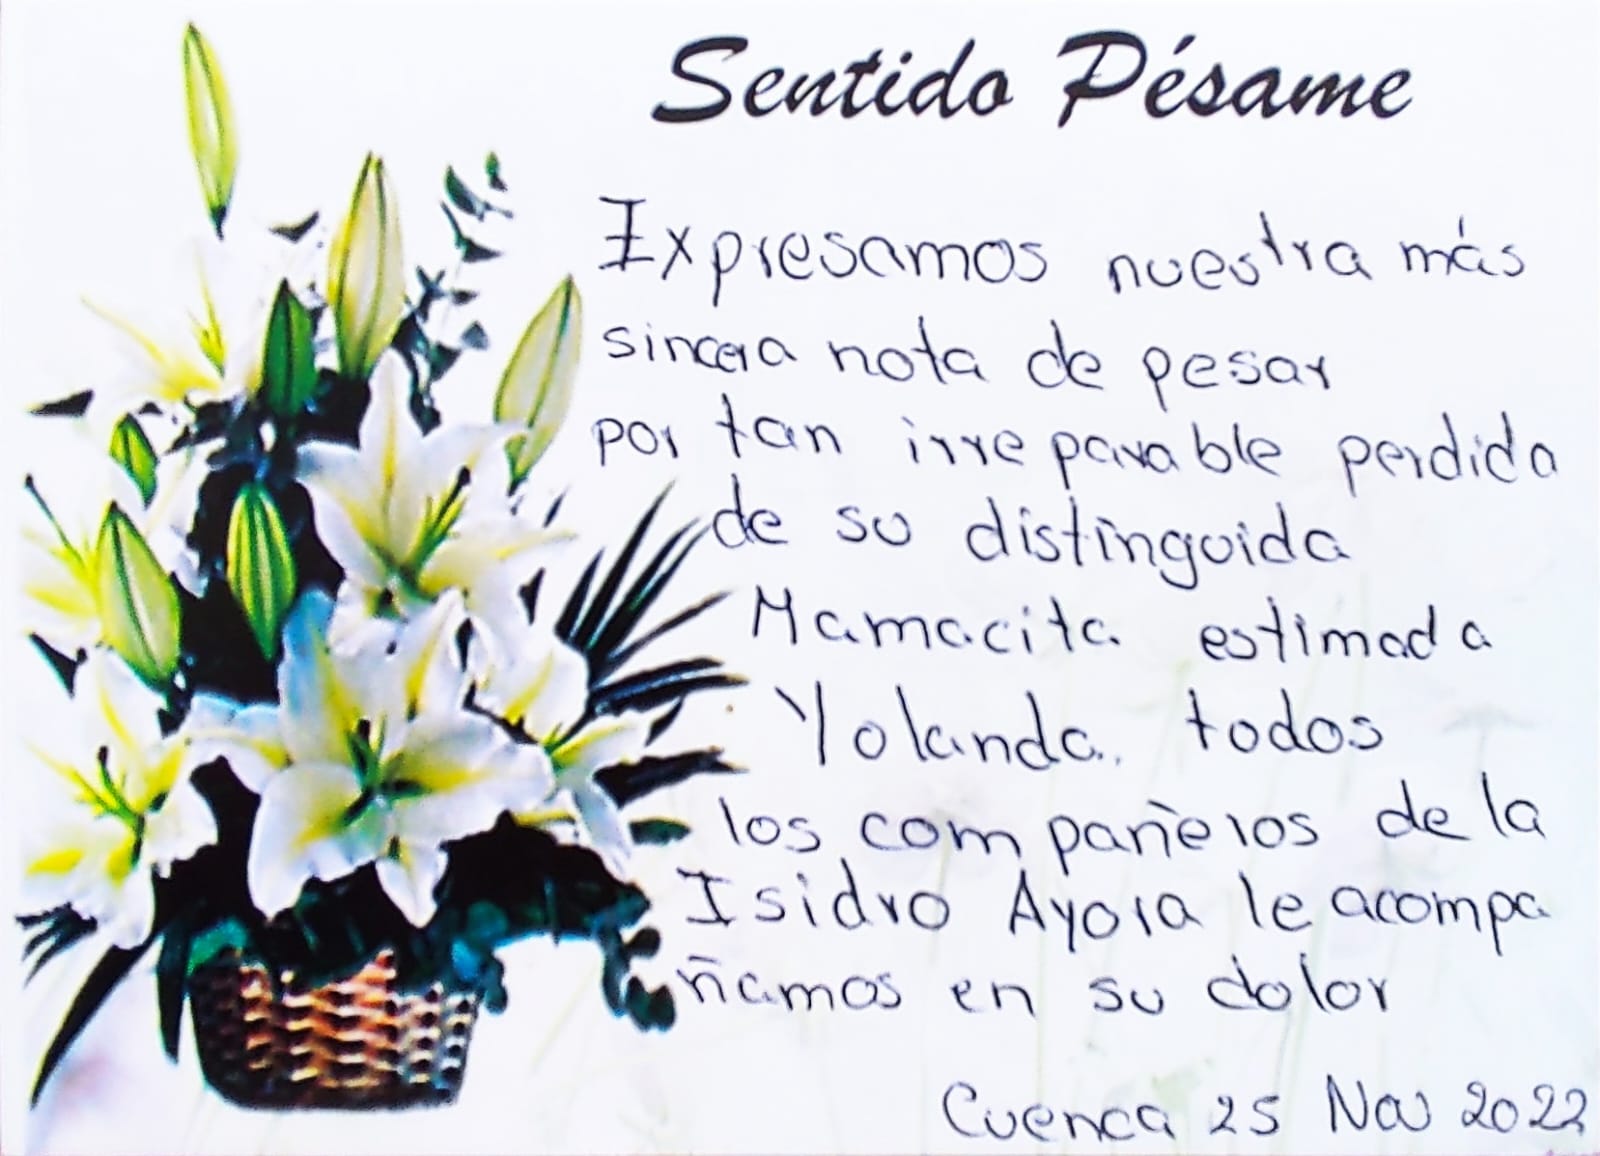 Sentido Pésame
Expresamos nuestra más
sincera nota de pesar
por tan irreparable perdida
de su distinguida
Mamacita estimada
Yolanda. todos
los compañeros de la
Isidro Ayora le acompa
ñamos en su dolor
Cuenca 25 Nov 2022